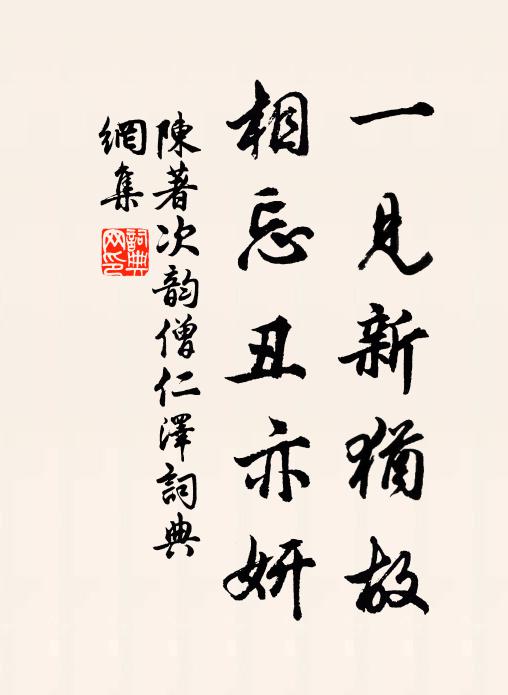 一見新猶故
相忘丑亦妍
陳著次韵僧仁澤詞典
網集
詞典
网印